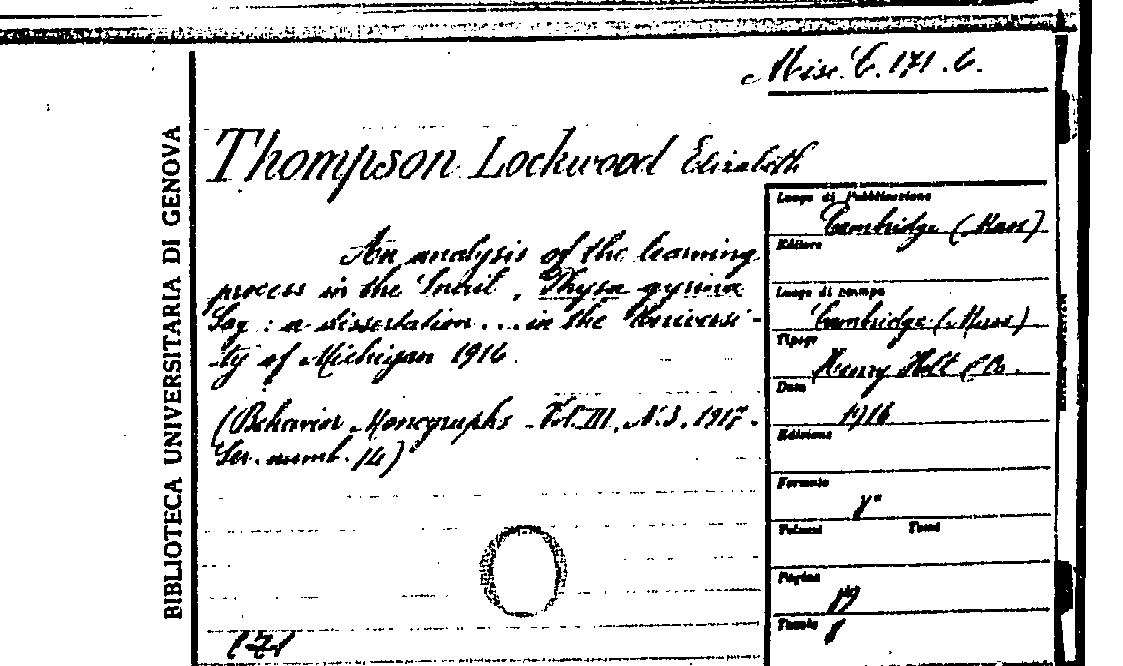 Misc. C. 171. 6.
Thompson Lockwood Elizabeth
An analysis of the learning
process in the Snail, Physa gyrina
Say: a dissertation... in the Universi-
ty of Michigan 1916.
(Behavior Monographs Vol. III, N. 3, 1917.
Ser. numb. 14)
BIBLIOTECA UNIVERSITARIA DI GENOVA
Luogo di Pubblicazione
Cambridge (Mass)
Editore
Luogo di stampa
Cambridge (Mass)
Tipogr
Henry Holt & Co.
Data
1916
Edizione
Formato
8°
Volumi Tomi
Pagine
Tavole